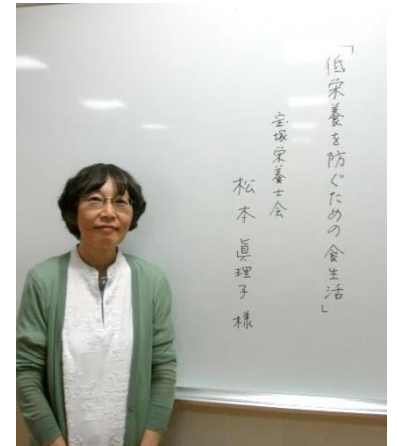 「低栄養を防ぐための食生活」
宝塚栄養士会
松本眞理子様